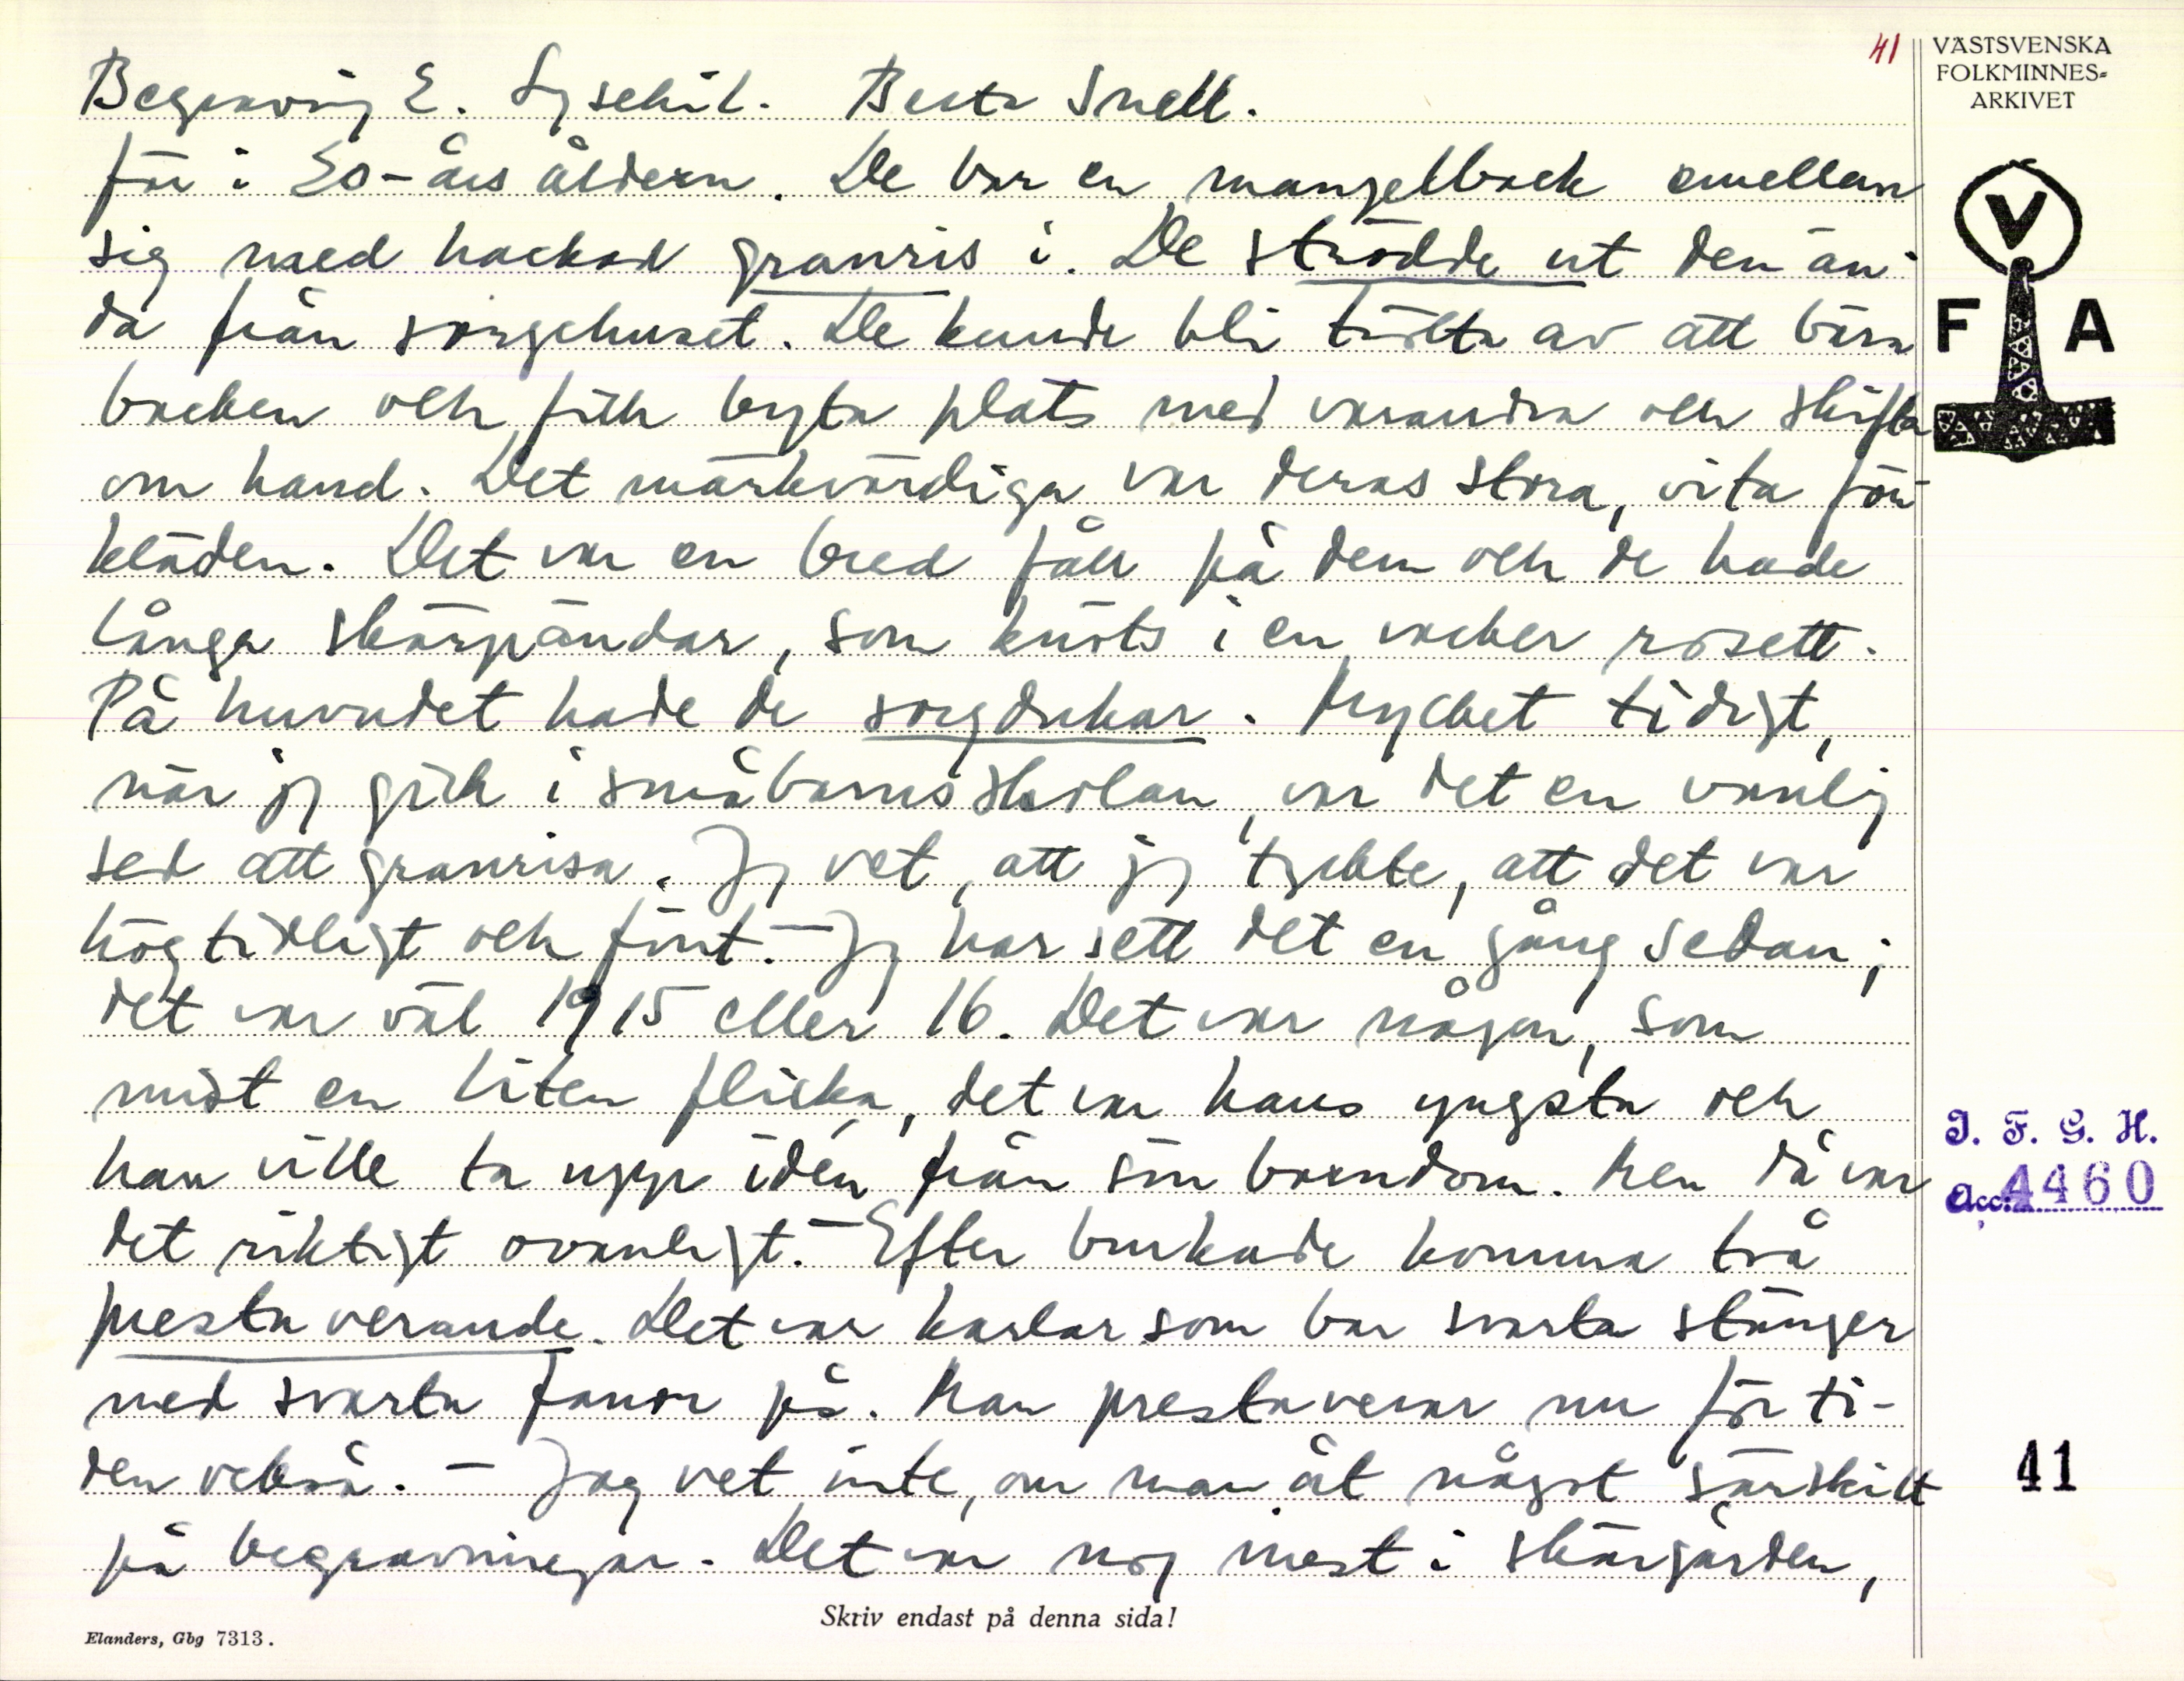 41
VÄSTSVENSKA
FOLKMINNES=
ARKIVET
Begravning E. Lysekil. Berta Snell.
för i 20-års åldern. De bar en mangelback emellan
sig med hackad granris i. De strödde ut den än-
da från sorgehuset. De kunde bli trötta av att bära
backen och fick byta plats med varandra och skifta
om hand. Det märkvärdiga var deras stora, vita för-
kläden. Det var en bred fåll på dem och de hade
långa skärpändar, som knöts i en vacker rosett.
På huvudet hade de sorgdukar. Mycket tidigt,
när jag gick i småbarnsskolan, var det en vanlig
sed att granrisa. Jag vet, att jag tyckte, att det var
högtidligt och fint. - Jag har sett det en gång sedan;
det var väl 1915 eller 16. Det var någon, som
mist en liten flicka, det var hans yngsta och
han ville ta upp idén från sin barndom. Men då var
det riktigt ovanligt. - Efter brukade komma två
prestaverande. Det var karlar som bar svarta stänger
med svarta fanor på. Man prestaverar nu för ti-
den också. - Jag vet inte, om man åt något särskilt
på begravningar. Det var nog mest i skärgården,
V
F A
I. F. G. H.
Acc. 4460
41
Skriv endast på denna sida!
Elanders, Gbg 7313.